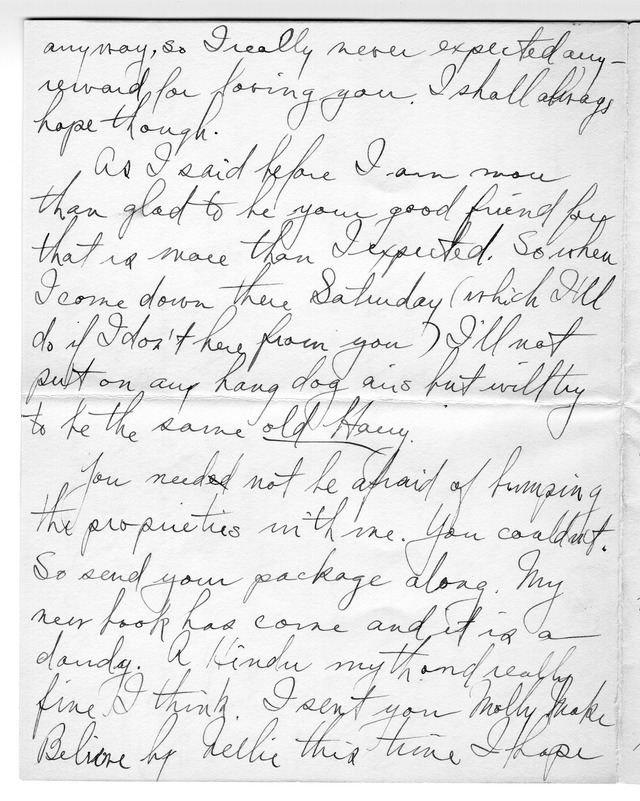 anyway, so I really never expected any-
reward for loving you. I shall always
hope though.
As I said before I am more
than glad to be your good friend for
that is more than I expected. So when
I come down there Saturday (which I'll
do if I don't here from you) I'll not
put on any hang dog airs but will try
to be the same old Harry.
You needed not be afraid of bumping
the proprieties with me. You couldn't.
So send your package along. My
new book has come and it is a
dandy. A Hindu myth and really
fine I think. I sent you Molly Make
Believe by Nellie this time I hope